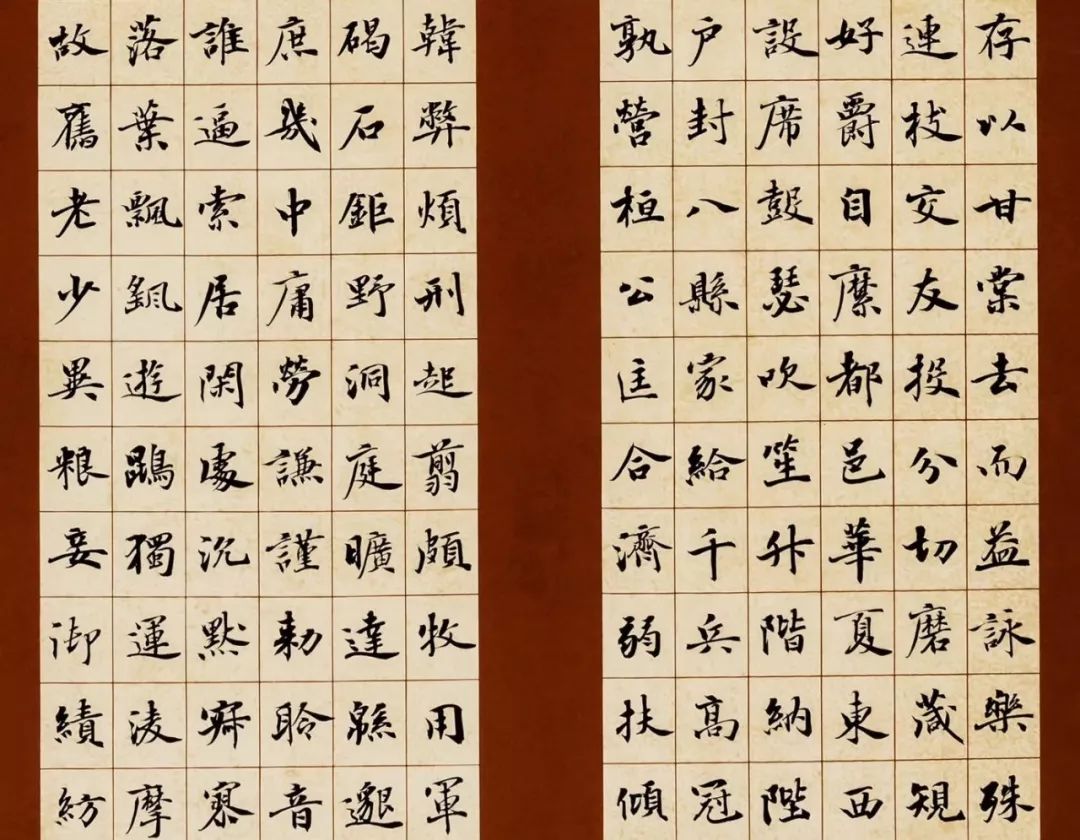 存以甘棠去而益詠樂殊
連枝交友投分切磨箴規
好爵自縻都邑華夏東西
設席鼓瑟吹笙升階納陛
户封八縣家給千兵高冠
孰營桓公匡合濟弱扶傾
韓弊煩刑起翦頗牧用軍
碣石鉅野洞庭曠遠緜邈
庶幾中庸勞謙謹勑聆音
誰逼索居閑處沉默寂寥
落葉飄颻遊鵾獨運凌摩
故舊老少異粮妾御績紡